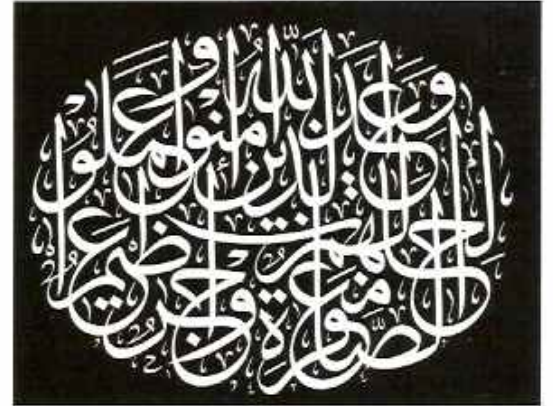 وعد الله الذين آمنوا وعملوا الصالحات لهم مغفرة وأجر عظيم